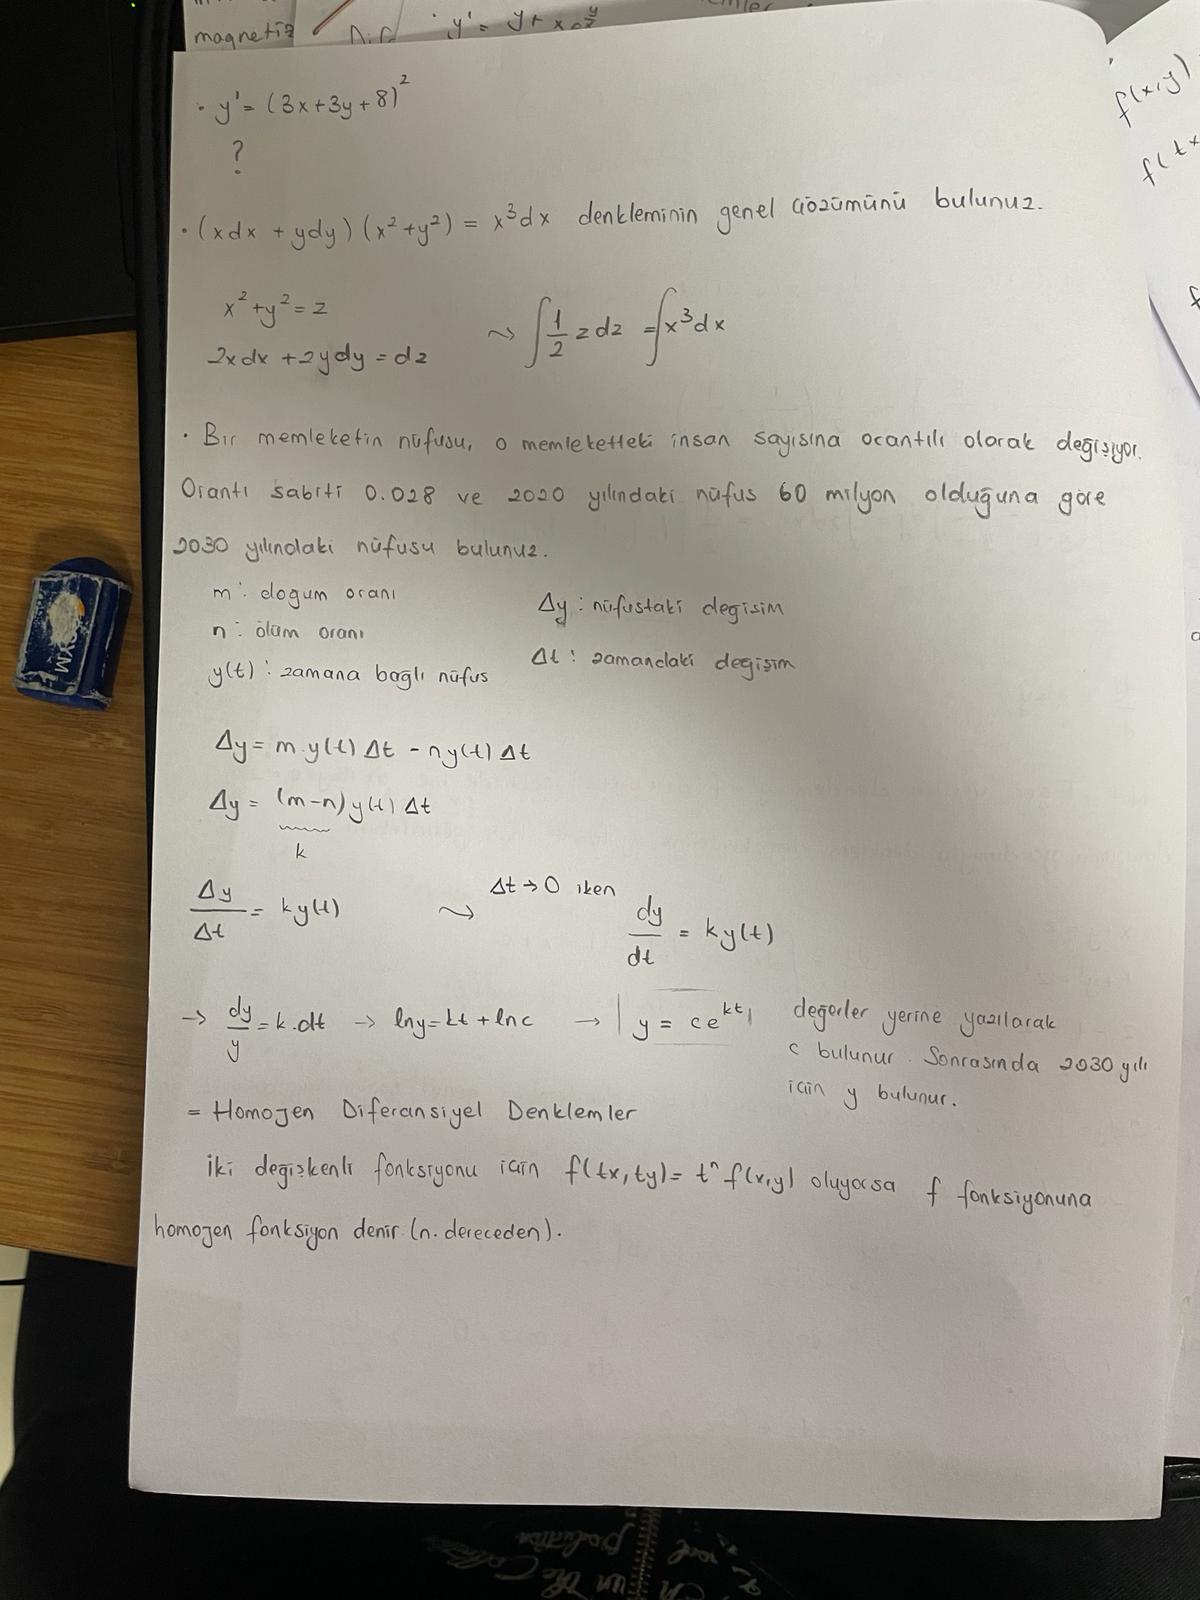 magnetiz
y' = y+ x
· y'= (3x+3y+8)²
?
· (xdx + ydy) (x²+y²) = x³dx denkleminin genel çözümünü bulunuz.
x²+y²=z
2xdx +2ydy = dz
~> ∫ 1/2 z dz = ∫x³dx
· Bir memleketin nüfusu, o memleketteki insan sayısına orantılı olarak değişiyor.
Orantı sabiti 0.028 ve 2020 yılındaki nüfus 60 milyon olduğuna göre
2030 yılındaki nüfusu bulunuz.
m: doğum oranı
n: ölüm oranı
y(t): zamana bağlı nüfus
Δy: nüfustaki değişim
Δt: zamandaki değişim
Δy= m.y(t) Δt - ny(t) Δt
Δy= (m-n)y(t) Δt
k
Δy/Δt = ky(t) ~> Δt→0 iken dy/dt = ky(t)
→ dy/y = k.dt → lny=kt+lnc → y = ce^kt
değerler yerine yazılarak
c bulunur. Sonrasında 2030 yılı
için y bulunur.
= Homojen Diferansiyel Denklemler
İki değişkenli fonksiyonu için f(tx,ty)= tⁿ f(x,y) oluyorsa f fonksiyonuna
homojen fonksiyon denir (n. dereceden).
f(x,y)
f(tx